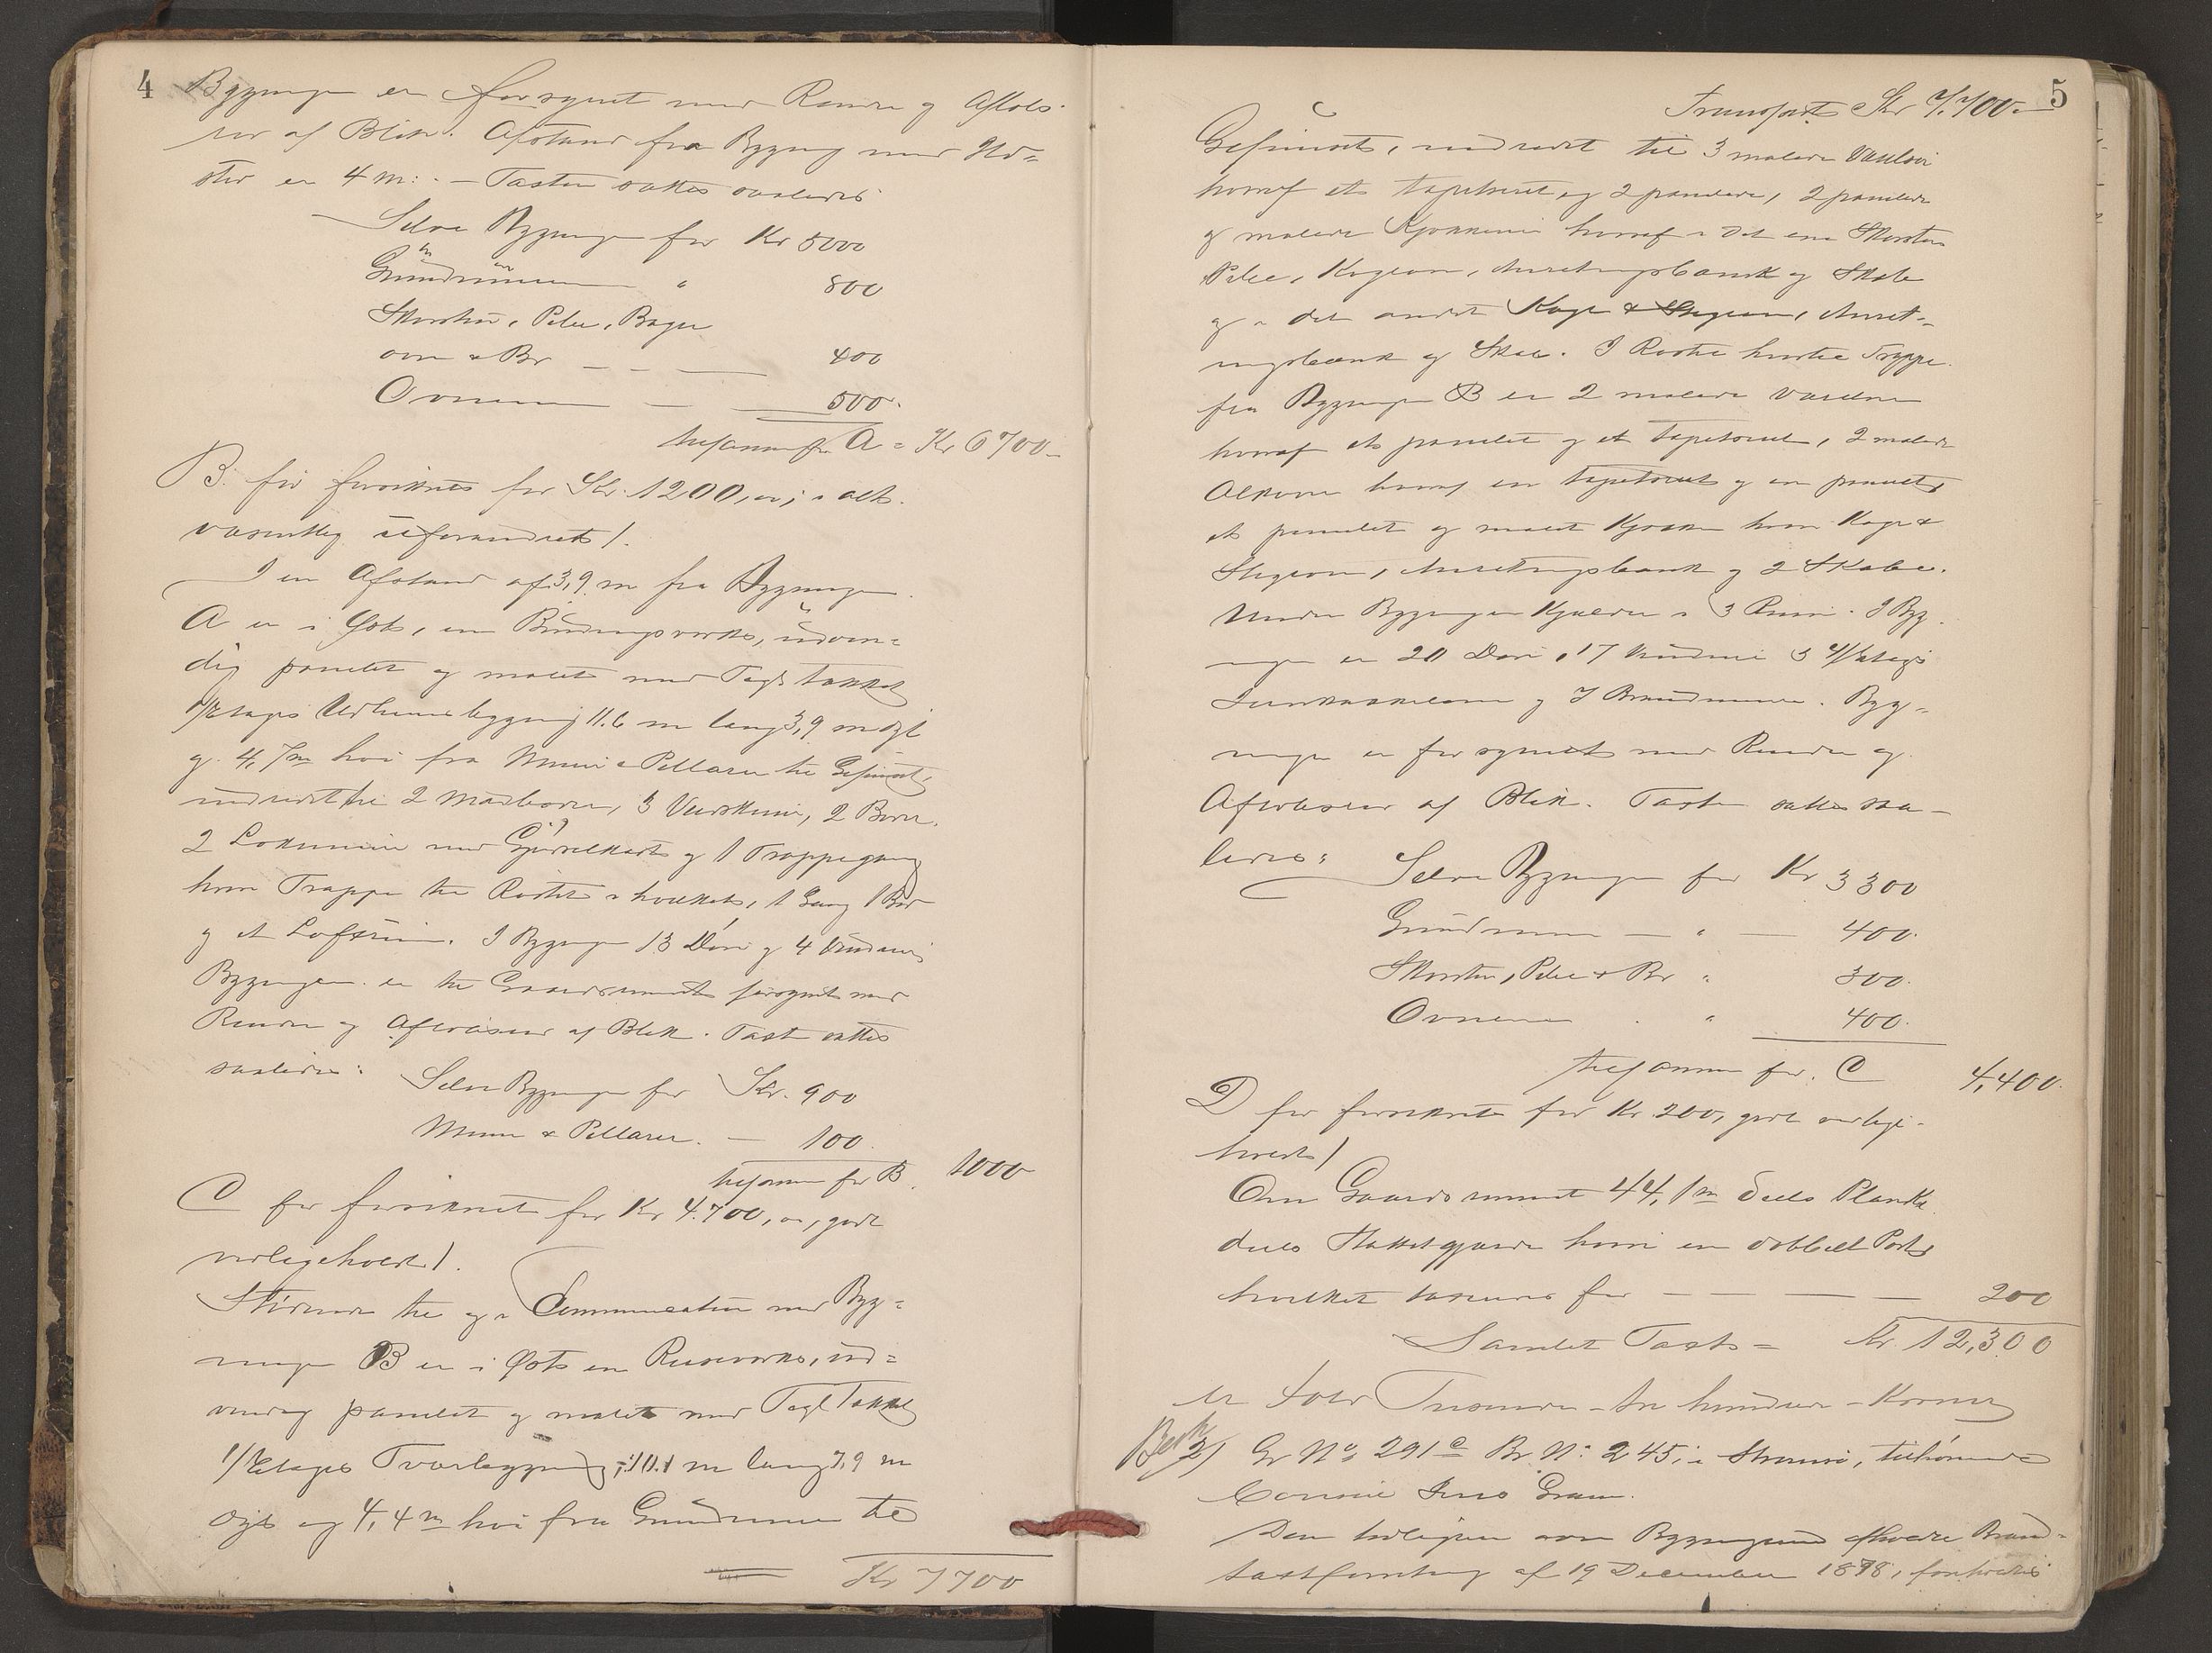 4
Bygningen er forsynet med Render og Afløbs-
rør af Blik. Afstand fra Bygning med Ild-
sted er 4 m: - Taxten sættes saaledes
Selve Bygningen for Kr 5000
Grundmuren " 800
Skorsten, Piber, Bager
ovn & Br 400
Ovnene 500.
tilsammen for A = Kr 6700-
B. før forsikret for Kr. 1200, er i alt
væsentlig uforandret).
I en Afstand af 3,9 m fra Bygningen
A er i Øst, en Bindingsværks, udven-
dig panelet og malet med Tagl takket
1/Etages Udhusbygning 11.6 m lang 3,9 m dyb
og 4,7 m høi fra Muur & Pillarer til Gesimst,
indredet til 2 Madboder, 3 Vedskuur, 2 Boder,
2 Lokummer med og 1 Trappegang
hvori Trappe til Røstet i hvilket, 1 Gang 1 Bod
og et Loftsrum. I Bygningen 13 Døre og 4 Vinduer
Bygningen er til Gaardsrummet forsynet med
Render og Afløbsrør af Blik. Taxt sættes
saaledes:
Selve Bygningen for Kr. 900
Muur & Pillarer. - 100.
tilsammen for B. 1000
C før forsikret for Kr 4.700, er, godt
vedligeholdt).
Stødende til og i Communication med Byg-
ningen B er i Øst en Reisverks, ud-
vendig panelet og malet med Tagl Takket
1/Etages Tværbygning, 10.1 m lang 7,9 m
dyb og 4,4 m høi fra Grundmuren til
Kr 7700
5
Transport Kr 7.700.-
Gesimst, indredet til 3 malede Værelser
hvoraf et tapetseret og 2 panelede, 2 panelede
og malede Kjøkkener hvoraf i det ene Skorsten
Pibe, Kogeovn, Anretningsbænk og Skabe
og i det andet Koge & Stegeovn, Anret-
ningsbænk og Skab. I Røstet hvortil Trappe
fra Bygningen B er 2 malede Værelser
hvoraf et panelet og et tapetseret, 2 malede
Alkover hvoraf en tapetseret og en panelet,
et panelet og malet Kjøkken hvori Koge &
Stegeovn, Anretningsbænk og 2 Skabe.
Under Bygningen Kjælder i 3 Rum. I Byg
ningen er 20 Døre, 17 Vinduer 3 4/Etages
og 1 Brandmuur. Byg-
ningen er forsynet med Render og
Afløbsrør af Blik. Taxten sættes saa-
ledes:
Selve Bygningen for Kr 3300
Grundmuren - " - 400.
Skorsten, Piber & Br " 300.
Ovnene " 400.
tilsammen for C 4,400.
D før forsikret for Kr. 200, godt vedlige-
holdt)
Om Gaardsrummet 44,1 m deels Planke
deels Stakitgjærde hvori en dobbelt Port,
hvilket taxeres for - - - 200
Samlet Taxt = Kr 12,300
er Tolv Tusinde - tre hundrede - Kroner
2) Gr No 291 c Br N: 245, i Strømsø, tilhørende
Jens Gram.
Den tidligere over Bygningerne afholdte Brand-
taxtforretning af 19 December 1878, foreholdtes